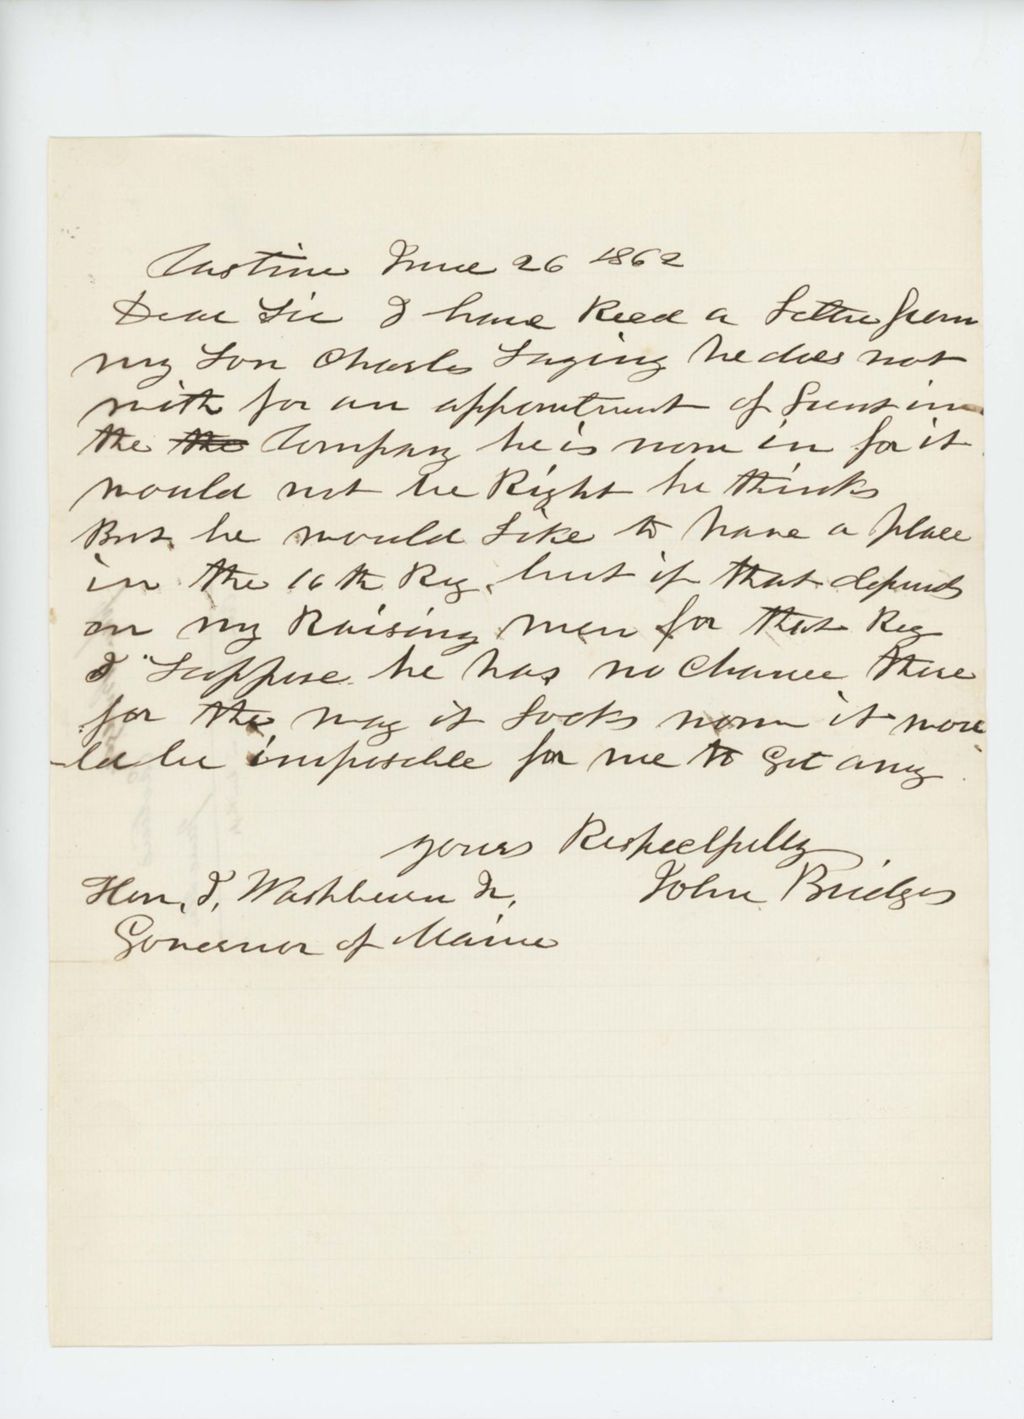 Castine June 26 1862
Dear Sir I have Recd a Letter from
my Son Charles Saying he does not
wish for an appointment of Lieut in
the the Company he is now in for it
would not be Right he thinks
But he would Like to have a place
in the 16th Reg. but if that depends
on my Raising men for that Reg
I Suppose he has no Chance there
for the way it Looks now it wou
ld be imposible for me to Get any
yours Respectfully
Hon, I, Washburn Jr, John Bridges
Governor of Maine